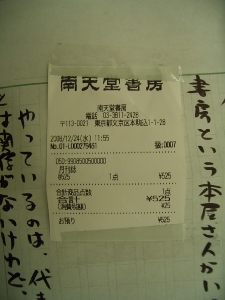 南天堂書房
南天堂書房
電話 03-3811-2428
〒113-0021 東京都文京区本駒込1-1-28
2008/12/24(水) 11:55
No.01-L000279461 扱:0007
050:9908500500000
月刊誌
@525 1点 ¥525
合計商品点数 1点
合計 ¥525
(消費税額) ¥25
お預り ¥525
書房という本屋さんがい
やっているのは、代